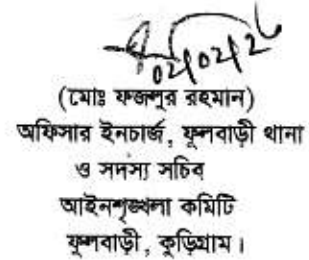 ০২/০২/২৬
(মোঃ ফজলুর রহমান)
অফিসার ইনচার্জ, ফুলবাড়ী থানা
ও সদস্য সচিব
আইনশৃঙ্খলা কমিটি
ফুলবাড়ী, কুড়িগ্রাম।